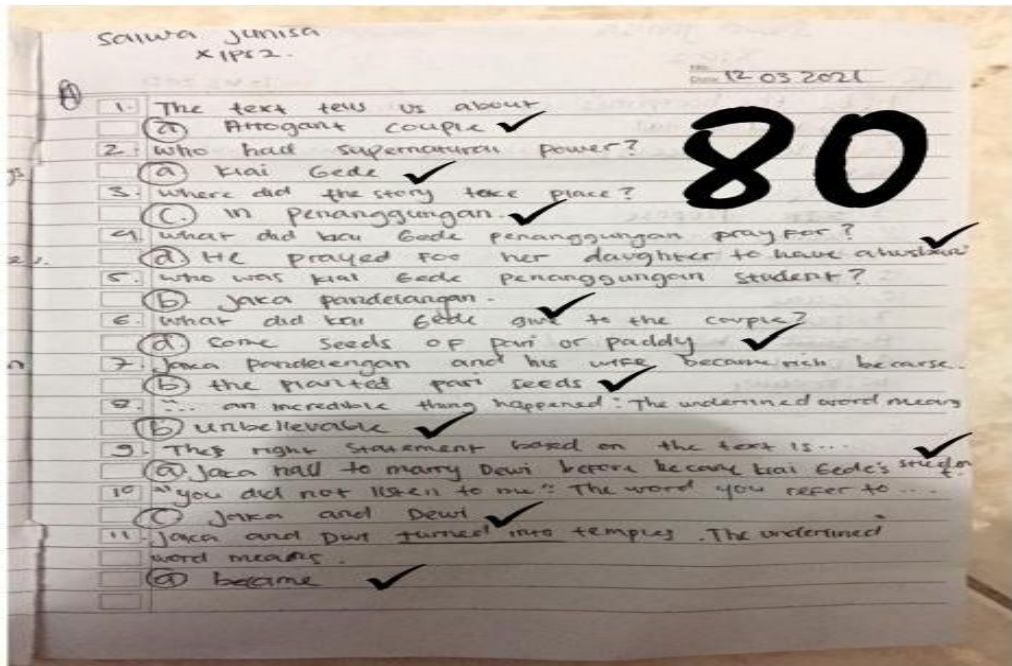 Salwa Junisa
X IPS 2.
Date 12 03 2021
80
A
1. The text tells us about
a Arrogant couple ✓
2. who had supernatural power?
a Kiai Gede ✓
3. where did the story take place?
C. in Penanggungan. ✓
4. what did kiai Gede penanggungan pray for? ✓
d He prayed Foo her daughter to have a husban
5. who was kiai Gede penanggungan student?
b Jaka pandelangan.
6. what did kiai Gede give to the couple? ✓
d some seeds of pari or paddy ✓
7. Jaka Pandelengan and his wife became rich becarse.
b the planted pari seeds ✓
8. "... an incredible thing happened". The underlined word means
b unbelievable ✓
9. The right Statement based on the text is... ✓
a. Jaka had to marry Dewi before became kiai Gede's student.
10 "you did not listen to me". The word you refer to ....
C Jaka and Dewi ✓
11. Jaka and Dwi turned into temples. The underlined
word means.
a became ✓